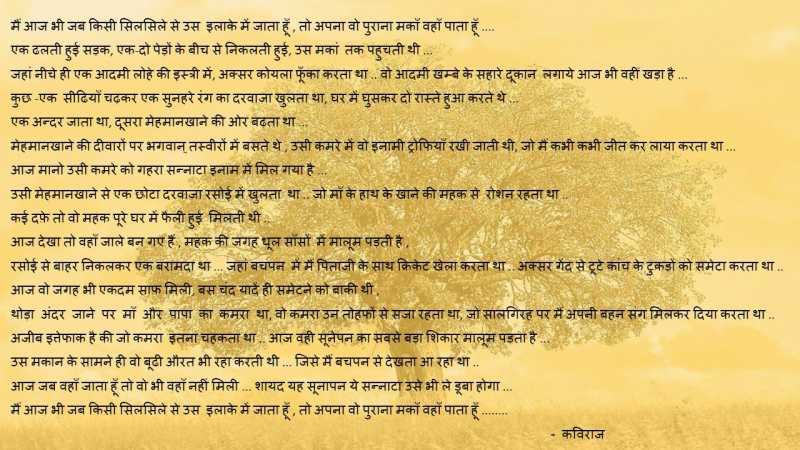 मैं आज भी जब किसी सिलसिले से उस इलाके में जाता हूँ , तो अपना वो पुराना मकाँ वहाँ पाता हूँ ....
एक ढलती हुई सड़क, एक-दो पेड़ों के बीच से निकलती हुई, उस मकां तक पहुचती थी ...
जहां नीचे ही एक आदमी लोहे की इस्त्री में, अक्सर कोयला फूँका करता था .. वो आदमी खम्बे के सहारे दूकान लगाये आज भी वहीं खड़ा है ...
कुछ -एक सीढियाँ चढ़कर एक सुनहरे रंग का दरवाजा खुलता था, घर में घुसकर दो रास्ते हुआ करते थे ...
एक अन्दर जाता था, दूसरा मेहमानखाने की ओर बढ़ता था ...
मेहमानखाने की दीवारों पर भगवान् तस्वीरों में बसते थे , उसी कमरे में वो इनामी ट्रोफियाँ रखी जाती थी, जो मैं कभी कभी जीत कर लाया करता था ...
आज मानो उसी कमरे को गहरा सन्नाटा इनाम में मिल गया है ...
उसी मेहमानखाने से एक छोटा दरवाज़ा रसोई में खुलता था .. जो माँ के हाथ के खाने की महक से रोशन रहता था ..
कई दफे तो वो महक पूरे घर में फैली हुई मिलती थी ..
आज देखा तो वहाँ जाले बन गए हैं , महक की जगह धूल साँसों में मालूम पड़ती है ,
रसोई से बाहर निकलकर एक बरामदा था ... जहां बचपन में मैं पिताजी के साथ क्रिकेट खेला करता था .. अक्सर गेंद से टूटे कांच के टुकड़ों को समेटा करता था ..
आज वो जगह भी एकदम साफ़ मिली, बस चंद यादें ही समेटने को बाकी थी ,
थोड़ा अंदर जाने पर माँ और पापा का कमरा था, वो कमरा उन तोहफों से सजा रहता था, जो सालगिरह पर मैं अपनी बहन संग मिलकर दिया करता था ..
अजीब इत्तेफाक है की जो कमरा इतना चहकता था .. आज वही सूनेपन का सबसे बड़ा शिकार मालूम पड़ता है ...
उस मकान के सामने ही वो बूढी औरत भी रहा करती थी ... जिसे मैं बचपन से देखता आ रहा था ..
आज जब वहाँ जाता हूँ तो वो भी वहाँ नहीं मिली ... शायद यह सूनापन ये सन्नाटा उसे भी ले डूबा होगा ...
मैं आज भी जब किसी सिलसिले से उस इलाके में जाता हूँ , तो अपना वो पुराना मकाँ वहाँ पाता हूँ ........
- कविराज